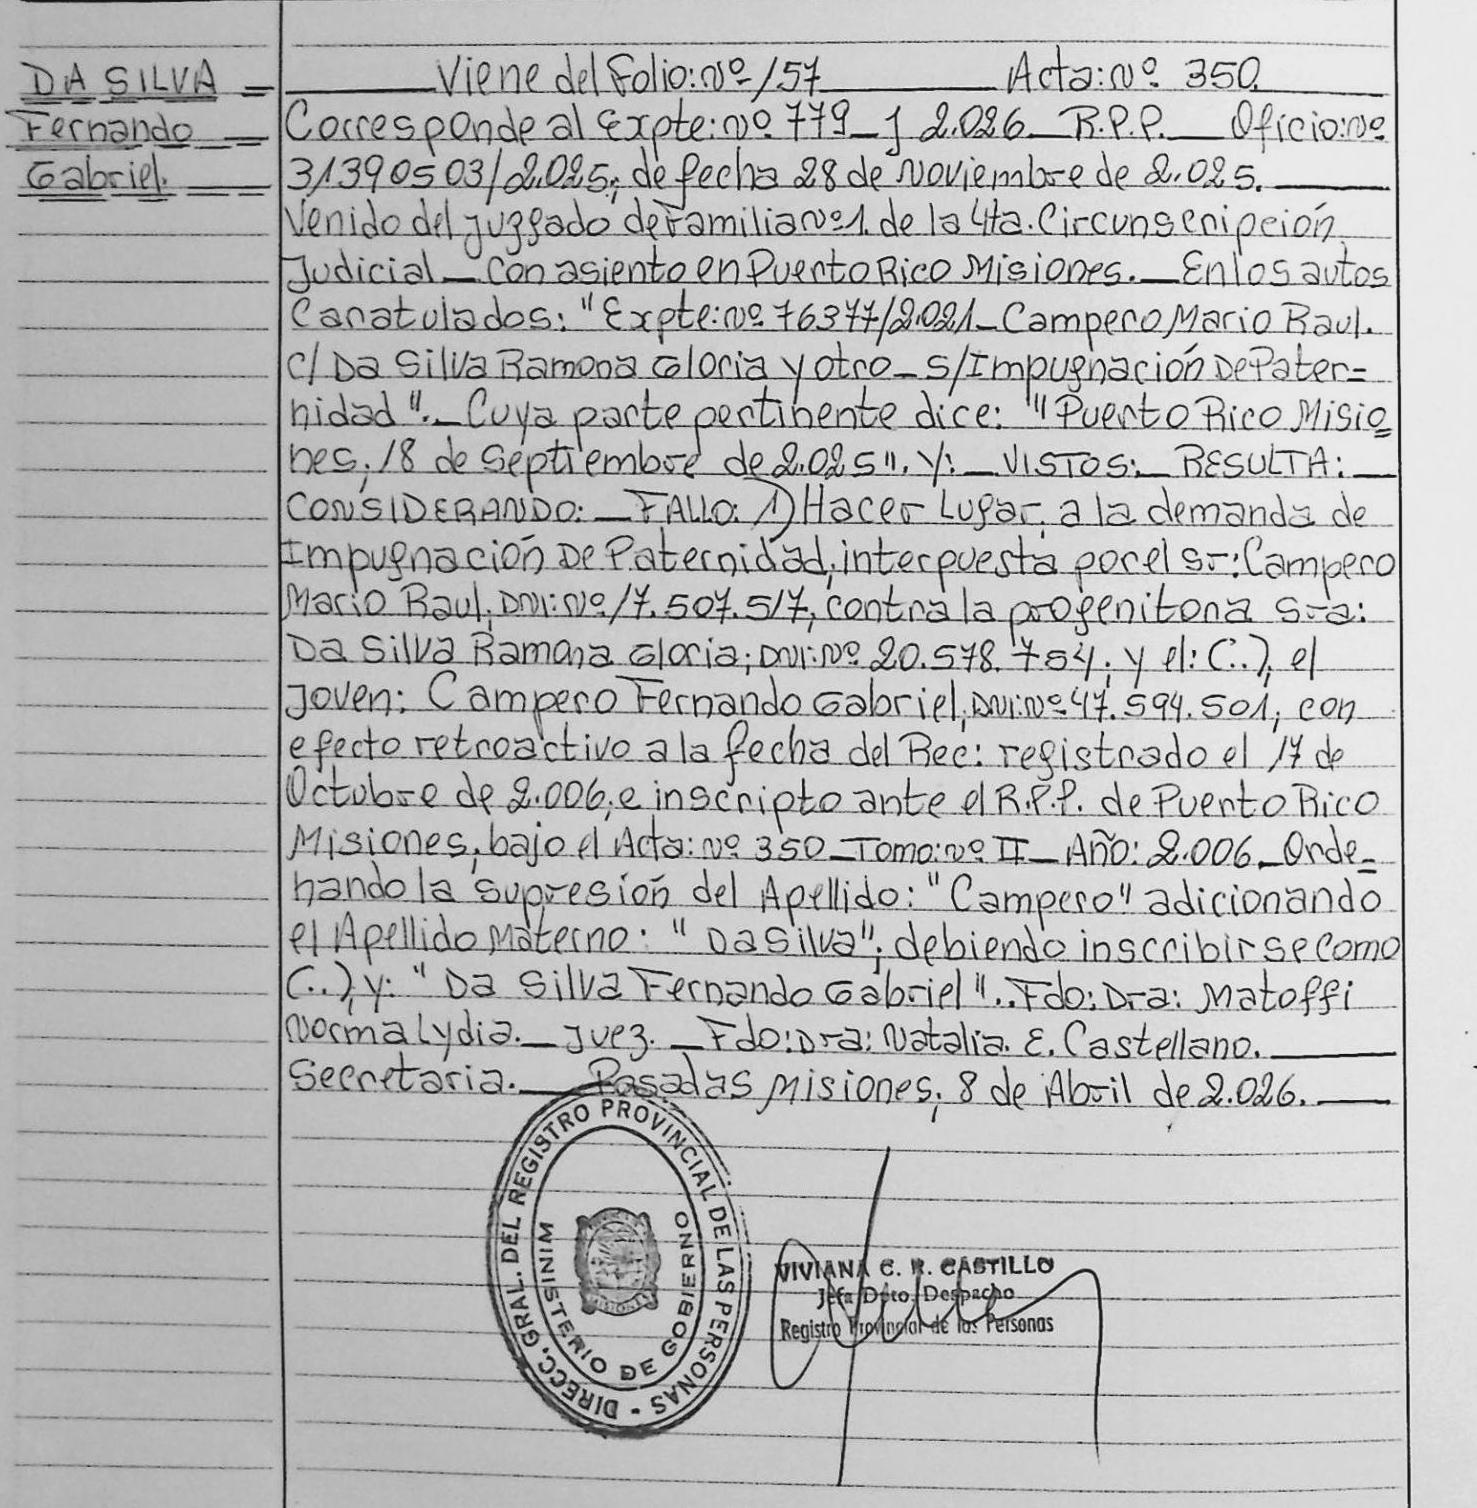 DA SILVA
Fernando
Gabriel.
Viene del Folio: Nº 157 Acta: Nº 350.
Corresponde al Expte: Nº 779_J 2.026_ R.P.P._ Oficio: Nº
31390503/2.025; de fecha 28 de Noviembre de 2.025.
Venido del Juzgado de Familia Nº 1. de la 4ta. Circunscripción
Judicial _ con asiento en Puerto Rico Misiones._ En los autos
Caratulados: "Expte: Nº 76377/2.021_ Campero Mario Raul.
C/ Da Silva Ramona Gloria y otro_ S/Impugnación De Pater=
nidad"._ Cuya parte pertinente dice: "Puerto Rico Misio=
nes, 18 de Septiembre de 2.025". Y:_ VISTOS:_ RESULTA:_
CONSIDERANDO:_ FALLO: 1) Hacer Lugar, a la demanda de
Impugnación De Paternidad; interpuesta por el Sr: Campero
Mario Raul; DNI: Nº 17.507.517, contra la progenitora Sra:
Da Silva Ramona Gloria; DNI: Nº 20.578.754; y el: (..), el
Joven: Campero Fernando Gabriel; DNI: Nº 47.594.501; con
efecto retroactivo a la fecha del Rec: registrado el 17 de
Octubre de 2.006; e inscripto ante el R.P.P. de Puerto Rico
Misiones, bajo el Acta: Nº 350_ Tomo: Nº II_ Año: 2.006_ Orde=
nando la supresión del Apellido: "Campero" adicionando
el Apellido Materno: "Da Silva"; debiendo inscribirse como
(..) y: "Da Silva Fernando Gabriel".. Fdo: Dra: Matoffi
Norma Lydia._ Juez._ Fdo: Dra: Natalia. E. Castellano.
Secretaria._ Posadas Misiones, 8 de Abril de 2.026.
DIRECC. GRAL. DEL REGISTRO PROVINCIAL DE LAS PERSONAS -
MINISTERIO DE GOBIERNO
MISIONES
VIVIANA C. R. CASTILLO
Jefa Dpto. Despacho
Registro Provincial de las Personas